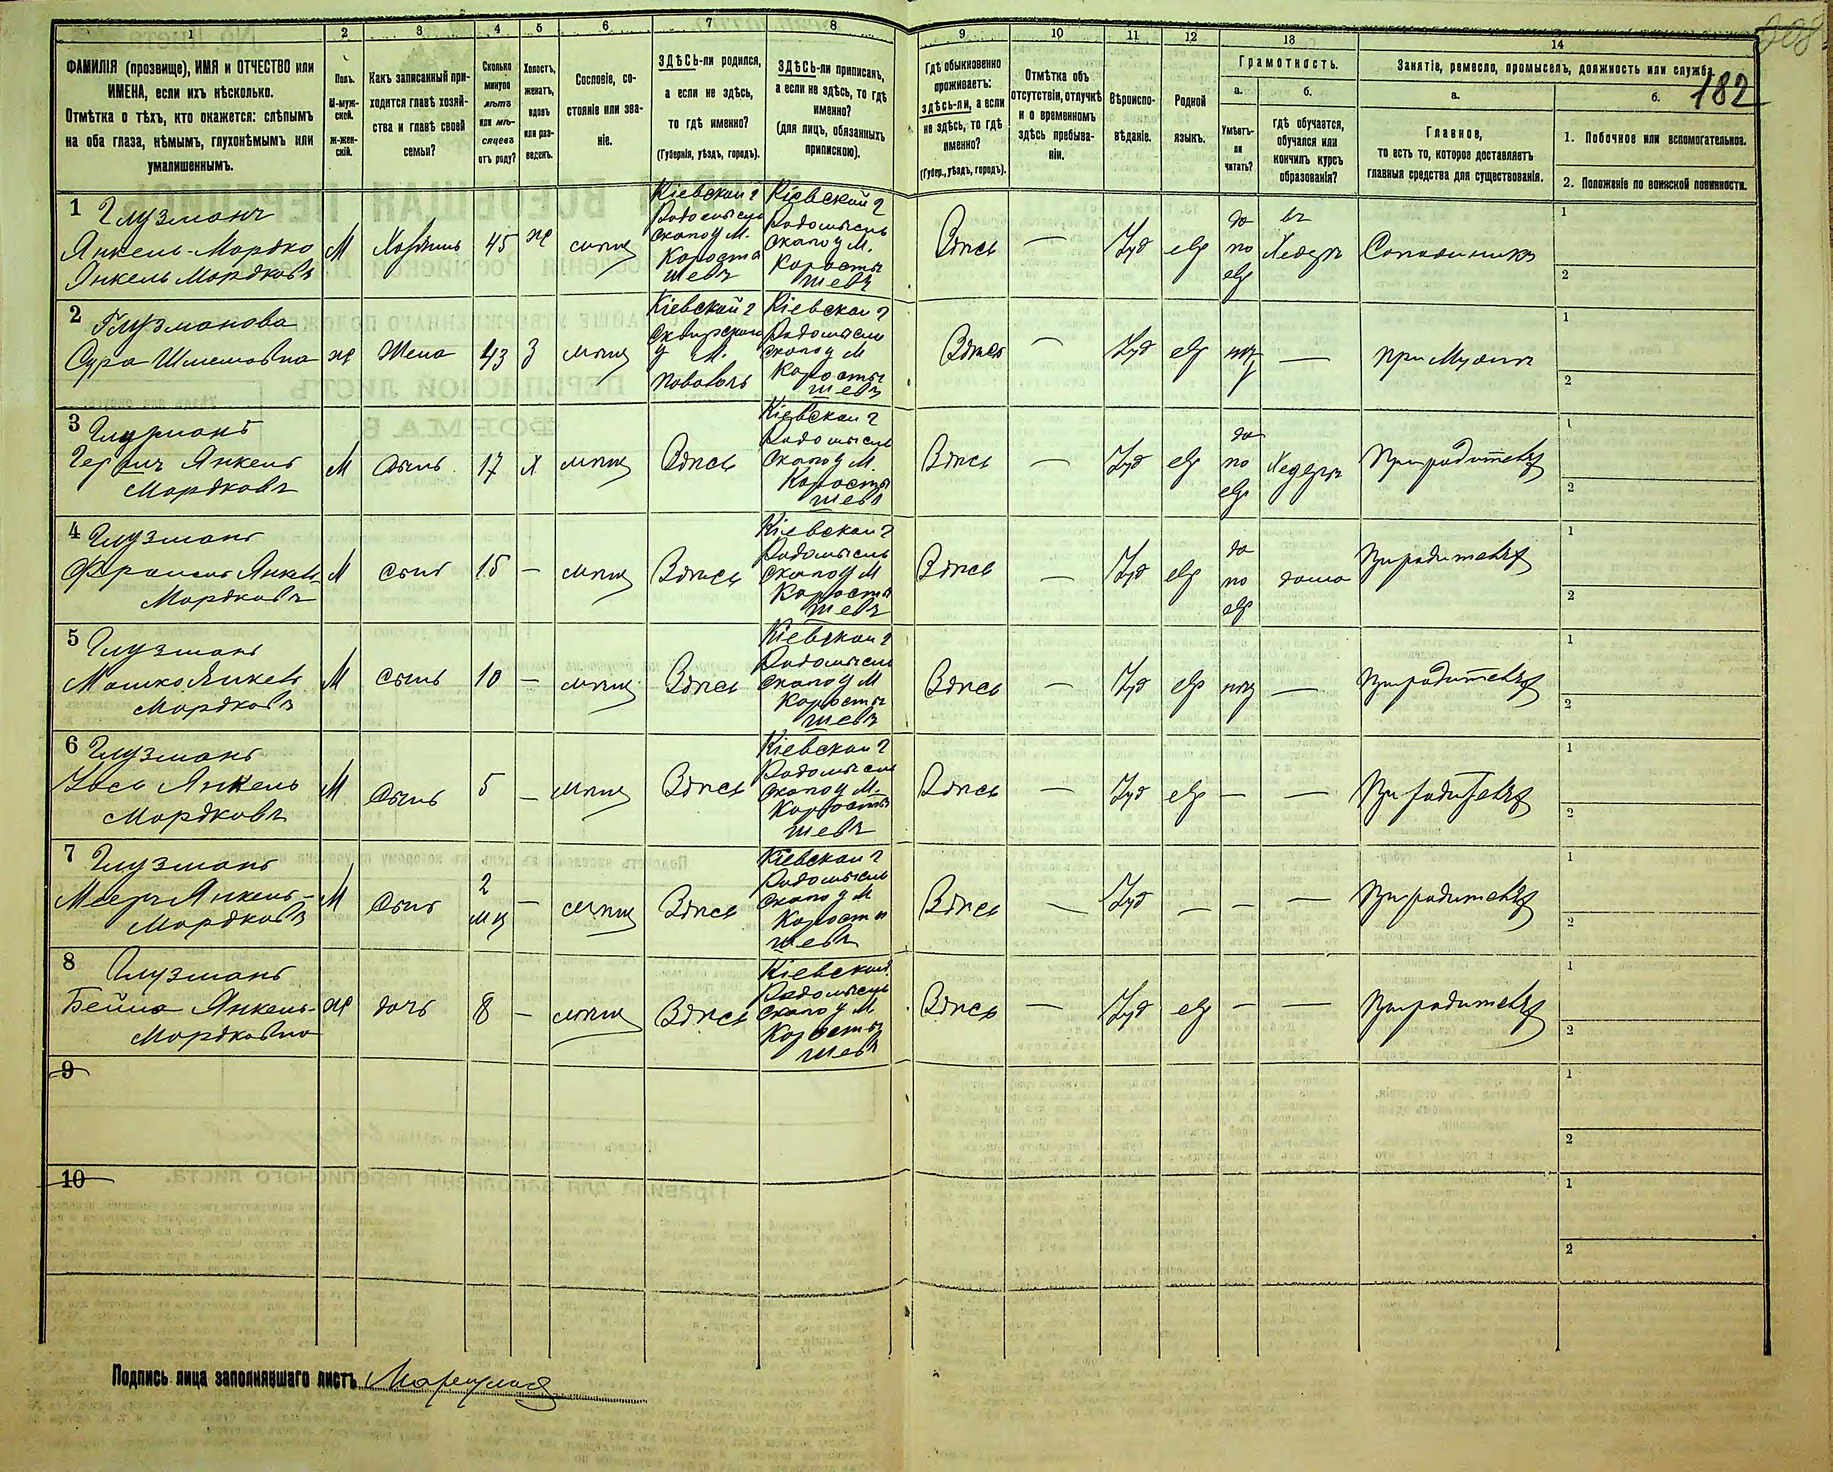 208
182
1
2
3
4
5
6
7
8
9
10
11
12
13
14
ФАМИЛІЯ (прозвище), ИМЯ и ОТЧЕСТВО или
ИМЕНА, если ихъ нѣсколько.
Отмѣтка о тѣхъ, кто окажется: слѣпымъ
на оба глаза, нѣмымъ, глухонѣмымъ или
умалишеннымъ.
Полъ.
М-муж-
ской.
Ж-жен-
скій.
Какъ записанный при-
ходится главѣ хозяй-
ства и главѣ своей
семьи?
Сколько
минуло
лѣтъ
или мѣ-
сяцевъ
отъ роду?
Холостъ,
женатъ,
вдовъ
или раз-
веденъ.
Сословіе, со-
стояніе или зва-
ніе.
ЗДѢСЬ-ли родился,
а если не здѣсь,
то гдѣ именно?
(Губернія, уѣздъ, городъ).
ЗДѢСЬ-ли приписанъ,
а если не здѣсь, то гдѣ
именно?
(для лицъ, обязанныхъ
припискою).
Гдѣ обыкновенно
проживаетъ:
здѣсь-ли, а если
не здѣсь, то гдѣ
именно?
(Губер., уѣздъ, городъ).
Отмѣтка объ
отсутствіи, отлучкѣ
и о временномъ
здѣсь пребыва-
ніи.
Вѣроиспо-
вѣданіе.
Родной
языкъ.
Грамотность.
а.
Умѣетъ-
ли
читать?
б.
гдѣ обучается,
обучался или
кончилъ курсъ
образованія?
Занятіе, ремесло, промыселъ, должность или служба.
а.
Главное,
то есть то, которое доставляетъ
главныя средства для существованія.
б.
1. Побочное или вспомогательное.
2. Положеніе по воинской повинности.
1 Глузманъ
Янкель-Мордко
Янкель Мордковъ
М
Хозяинъ
45
же
мѣщ
Кіевской г
Радомысль
скаго у М.
Коросты
шевъ
Кіевской г
Радомысль
скаго у М.
Коросты
шевъ
Здѣсь
—
Іуд
евр
да
по
евр
въ
Хедерѣ
1
2
2 Глузманова
Сура Шмемовна
же
Жена
43
З
мѣщ
Кіевской г
Сквирскаго
у М.
Кіевской г
Радомысль
скаго у М
Коросты
шевъ
Здѣсь
—
Іуд
евр
нѣт
—
при Мужѣ
1
2
3 Глузманъ
Янкель
Мордковъ
М
Сынъ
17
х
мѣщ
Здѣсь
Кіевской г
Радомысль
скаго у М.
Коросты
шевъ
Здѣсь
—
Іуд
евр
да
по
евр
Хедерѣ
При родителяхъ
1
2
4 Глузманъ
Янкель
Мордковъ
М
сынъ
15
—
мѣщ
Здѣсь
Кіевской г
Радомысль
скаго у М
Коросты
шевъ
Здѣсь
—
Іуд
евр
да
по
евр
дома
При родителяхъ
1
2
5 Глузманъ
Мошко Янкель
Мордковъ
М
сынъ
10
—
мѣщ
Здѣсь
Кіевской г
Радомысль
скаго у М
Коросты
шевъ
Здѣсь
—
Іуд
евр
нѣт
—
При родителяхъ
1
2
6 Глузманъ
Янкель
Мордковъ
М
Сынъ
5
—
мѣщ
Здѣсь
Кіевской г
Радомысль
скаго у М.
Коросты
шевъ
Здѣсь
—
Іуд
евр
—
—
При родителяхъ
1
2
7 Глузманъ
Мееръ Янкель-
Мордковъ
М
Сынъ
2
мц
—
мѣщ
Здѣсь
Кіевской г
Радомысль
скаго у М
Коросты
шевъ
Здѣсь
—
Іуд
—
—
—
При родителяхъ
1
2
8 Глузманъ
Бейла Янкель-
Мордковна
же
дочь
8
—
мѣщ
Здѣсь
Кіевской
Радомысль
скаго у М
Коросты
шевъ
Здѣсь
—
Іуд
евр
—
—
При родителяхъ
1
2
9
1
2
10
1
2
Подпись лица заполнявшаго листъ